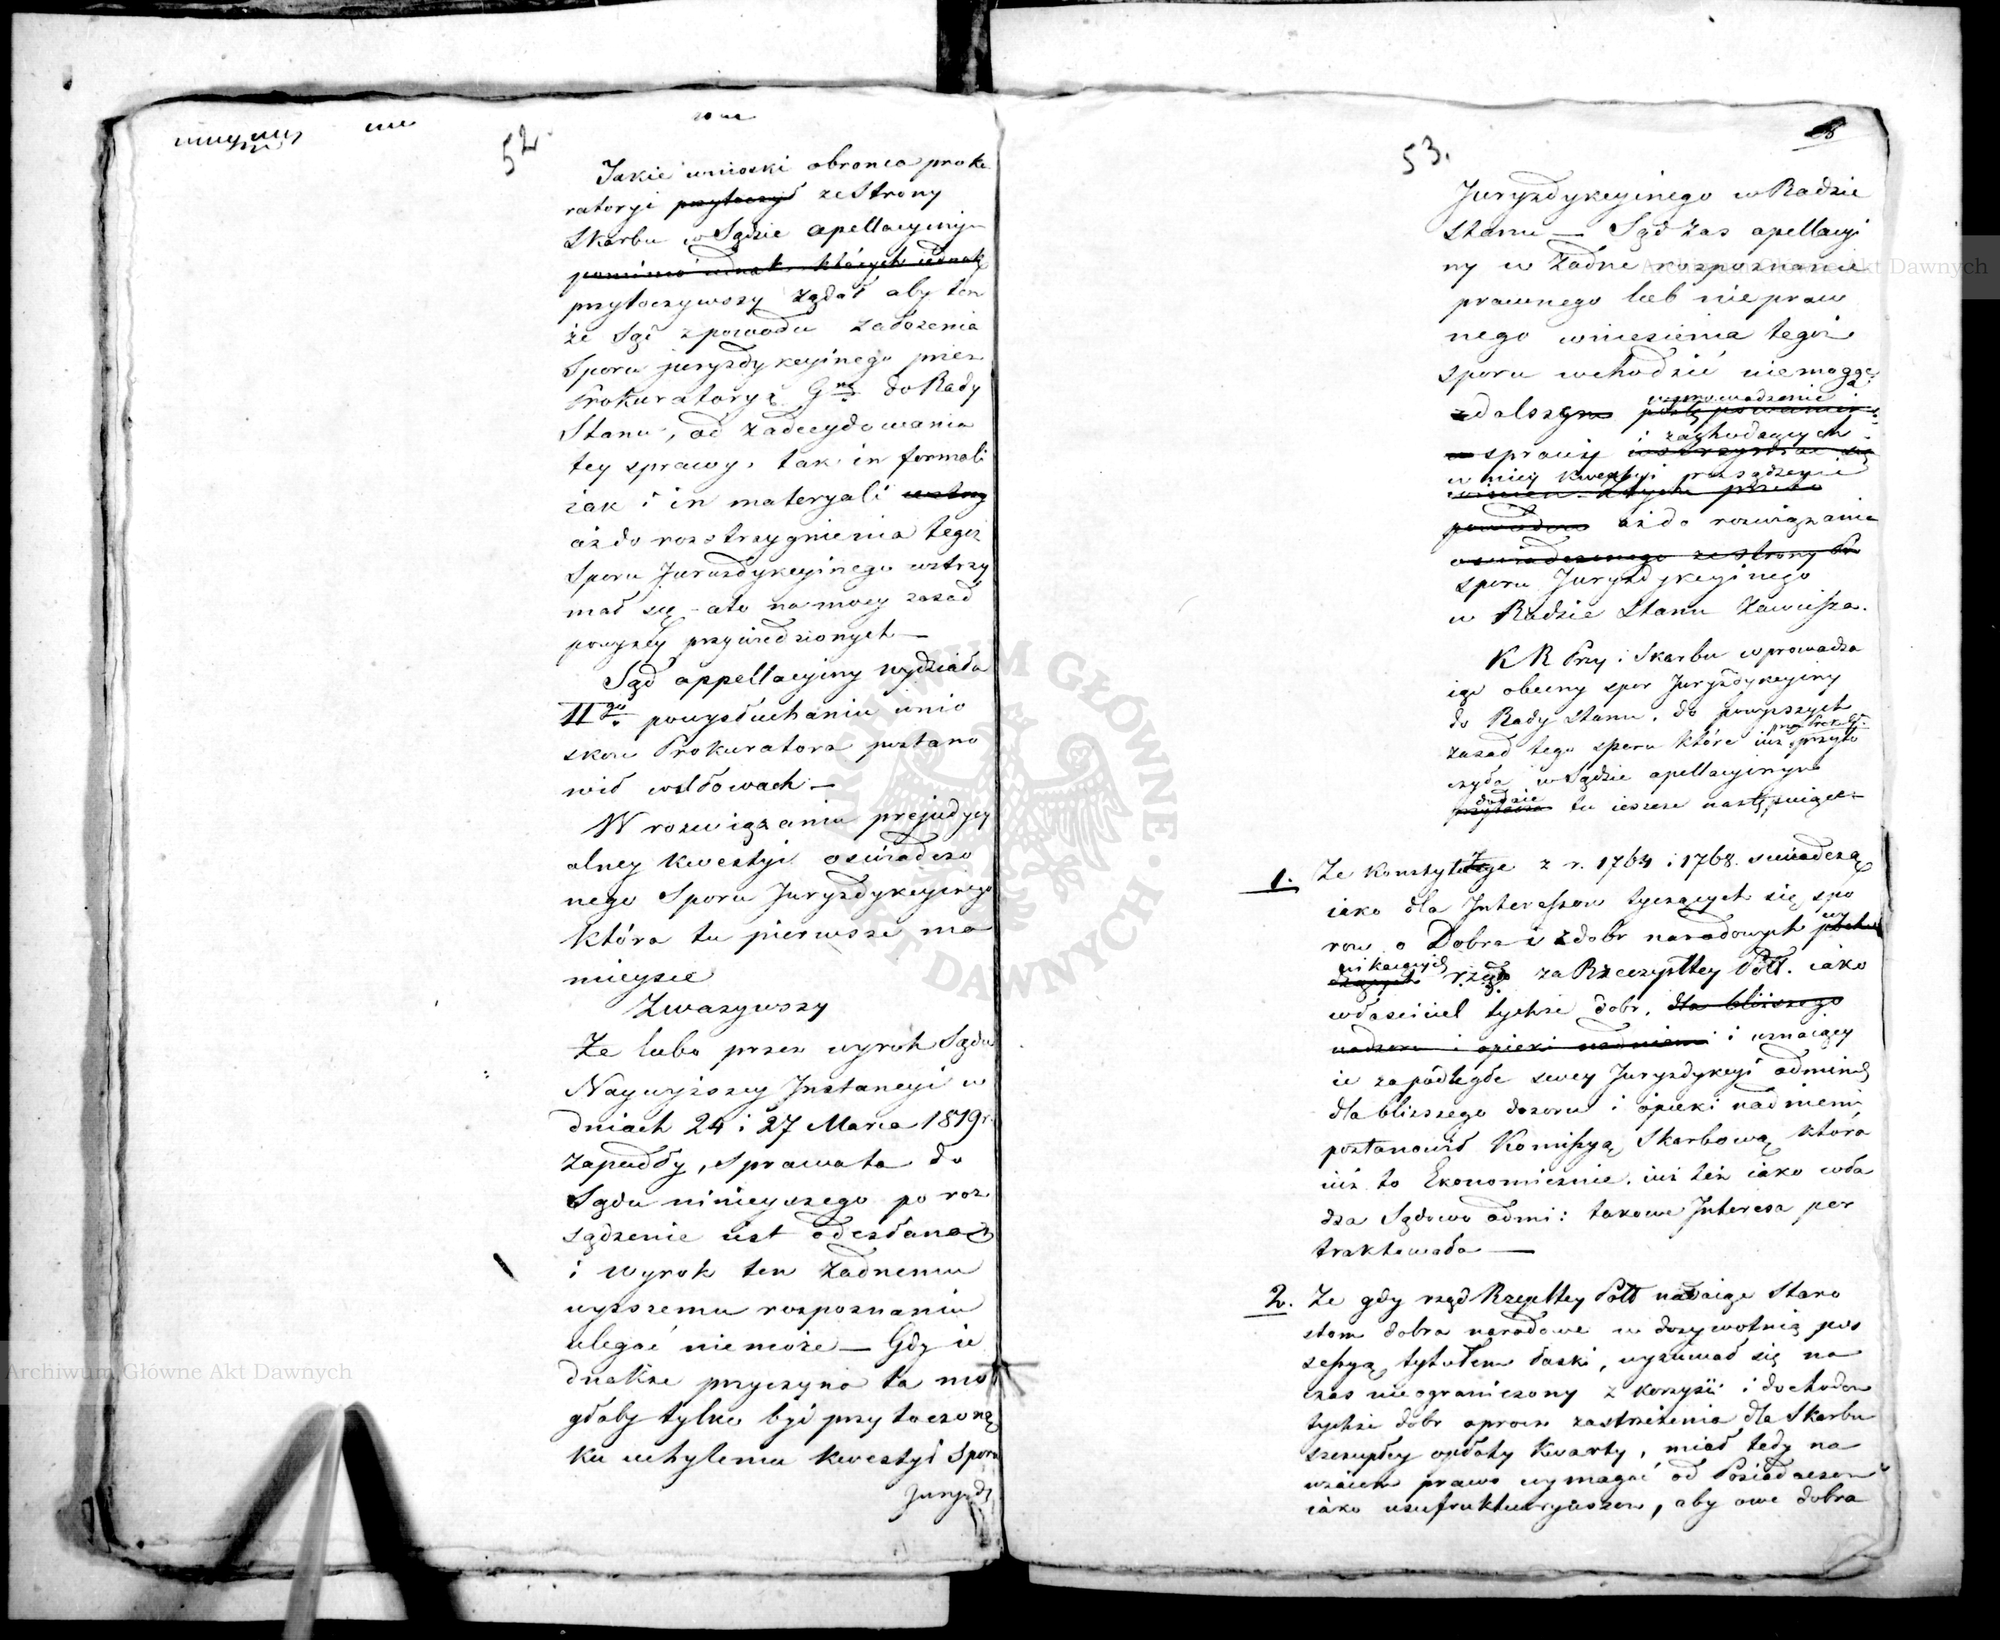 52.
Takie wnioski obronca proku
ratoryi przytoczył ze strony
Skarbu w Sądzie apellacyinym
pomimo iednak których iednak
przytoczywszy żądał aby ten
że Sąd z powodu założenia
Sporu jurysdykcyinego przez
Prokuratoryą Gną do Rady
Stanu, od zadecydowania
tey sprawy, tak in formali
iak i in materyali wstrzy
aż do rozstrzygnienia tegoż
Sporu Jurysdykcyinego wstrzy
mał się - a to na mocy zasad
powyżey przywiedzionych —
Sąd appellacyiny wydziału
II go po wysłuchaniu wnio
skow Prokuratora postano
wił w słowach —
W rozwiązaniu prejudycy
alney kwestyi oswiadczo
nego Sporu Jurysdykcyinego
która tu pierwsze ma
mieysce
Zważywszy
Że lubo przez wyrok Sądu
Naywyższey Instancyi w
dniach 24 i 27 Marca 1819 r.
zapadły, sprawa ta do
Sądu ninieyszego po roz
sądzenie iest odesłana
i wyrok ten żadnemu
wyższemu rozpoznaniu
ulegać nie może — Gdy ie
dnakże przyczyna ta mo
głaby tylko być przytoczoną
ku uchyleniu kwestyi Sporu
Jurysdy
53.
Jurysdykcyinego w Radzie
Stanu — Sąd zas apellacyi
ny w żadne rozpoznanie
prawnego lub nie praw
nego wniesienia tegoż
sporu wchodzić nie mogąc
wprowadzenie
z dalszym postępowaniem
i zachodzących
w sprawy wstrzymać się
w niey kwestyi rozsądzenie
powodow aż do rozwiązania
oswiadczonego ze strony Pro
sporu Jurysdykcyinego
w Radzie Stanu zawiesza.
K R Przy: i Skarbu wprowadza
iąc obecny spor Jurysdykcyiny
do Rady Stanu, do powyższych
zasad tego sporu które iuż przyto
czyła w Sądzie apellacyinym
dodaie
przytacza tu ieszcze następuiące:
1. Że Konstytucye z r. 1764 i 1768. swiadczą
iako dla Interessow tyczących się spo
row o Dobra i z dobr narodowych wy
nikaiących rząd za Rzeczypltey Pols. iako
właściciel tychże dobr, dla bliższego
nadzoru i opieki nad niemi i uznaiący
ie za podległe swey Jurysdykcyi admin:
dla bliższego dozoru i opieki nad niemi,
postanowił Komissyą Skarbową która
iuż to Ekonomicznie, iuż też iako wła
dza Sądowo admi: takowe Interesa per
traktowała —
2. Że gdy rząd Rzeypltey Pols nadaiąc Staro
stom dobra narodowe w dożywotnią pos
sessyą tytułem łaski, wyzuwał się na
czas nieograniczony z korzyści i dochodow
tychże dobr oprocz zastrzeżenia dla Skarbu
szczupłey opłaty Kwarty, miał tedy na
wzaiem prawo wymagać od Posiadaczow
iako usufruktuaryuszow, aby owe dobra
Archiwum Główne Akt Dawnych
Archiwum Główne Akt Dawnych
ARCHIWUM GŁÓWNE AKT DAWNYCH